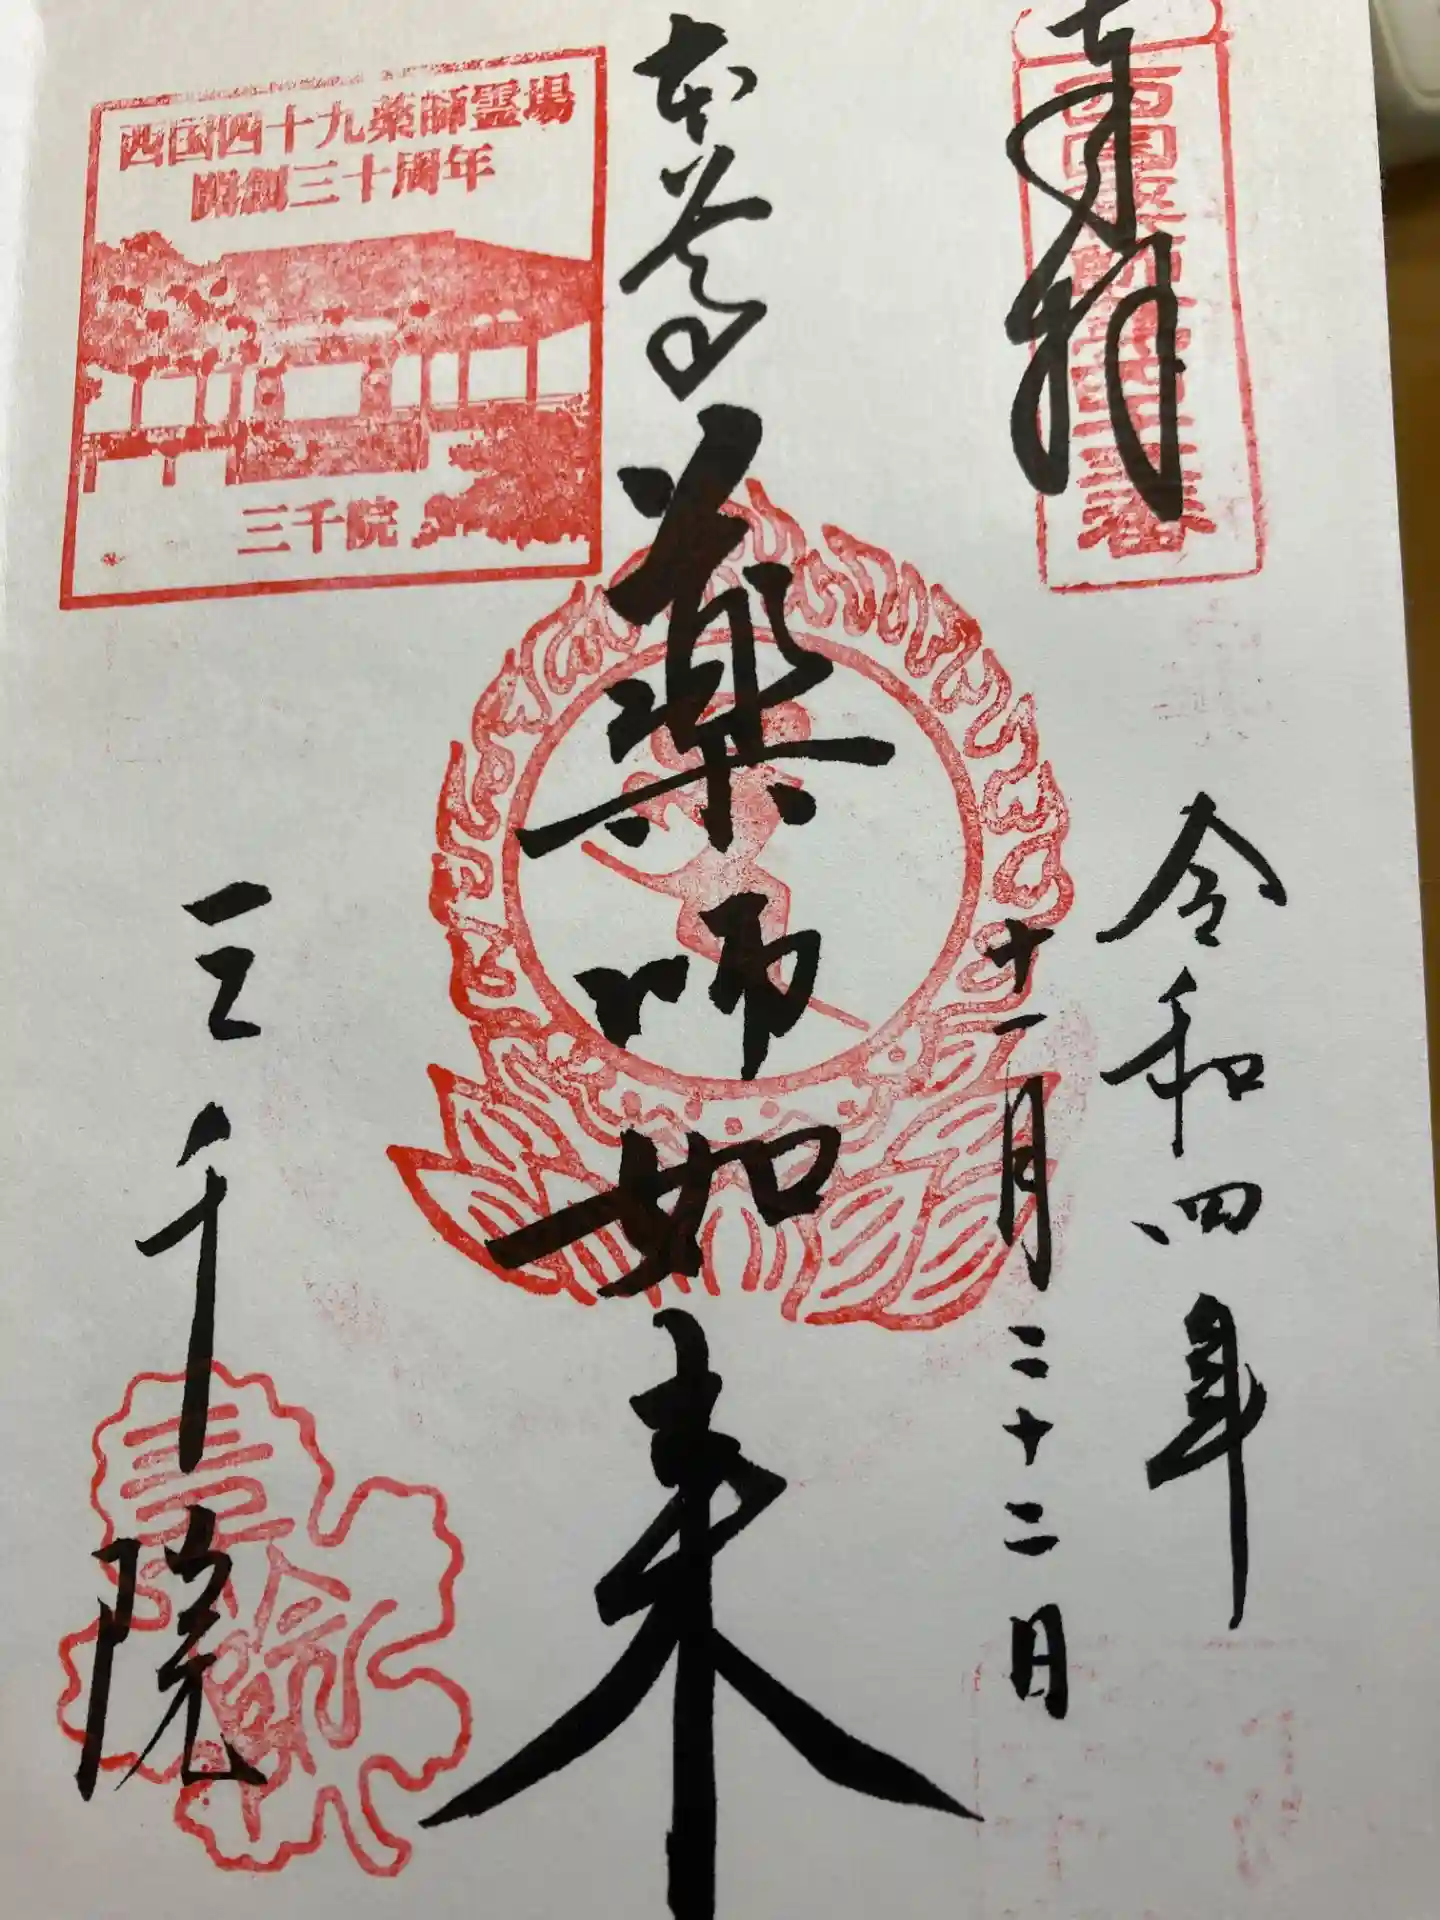 奉拝
令和四年
十一月二十二日
本尊
薬師如来
西国四十九薬師霊場
開創三十周年
三千院
三千院